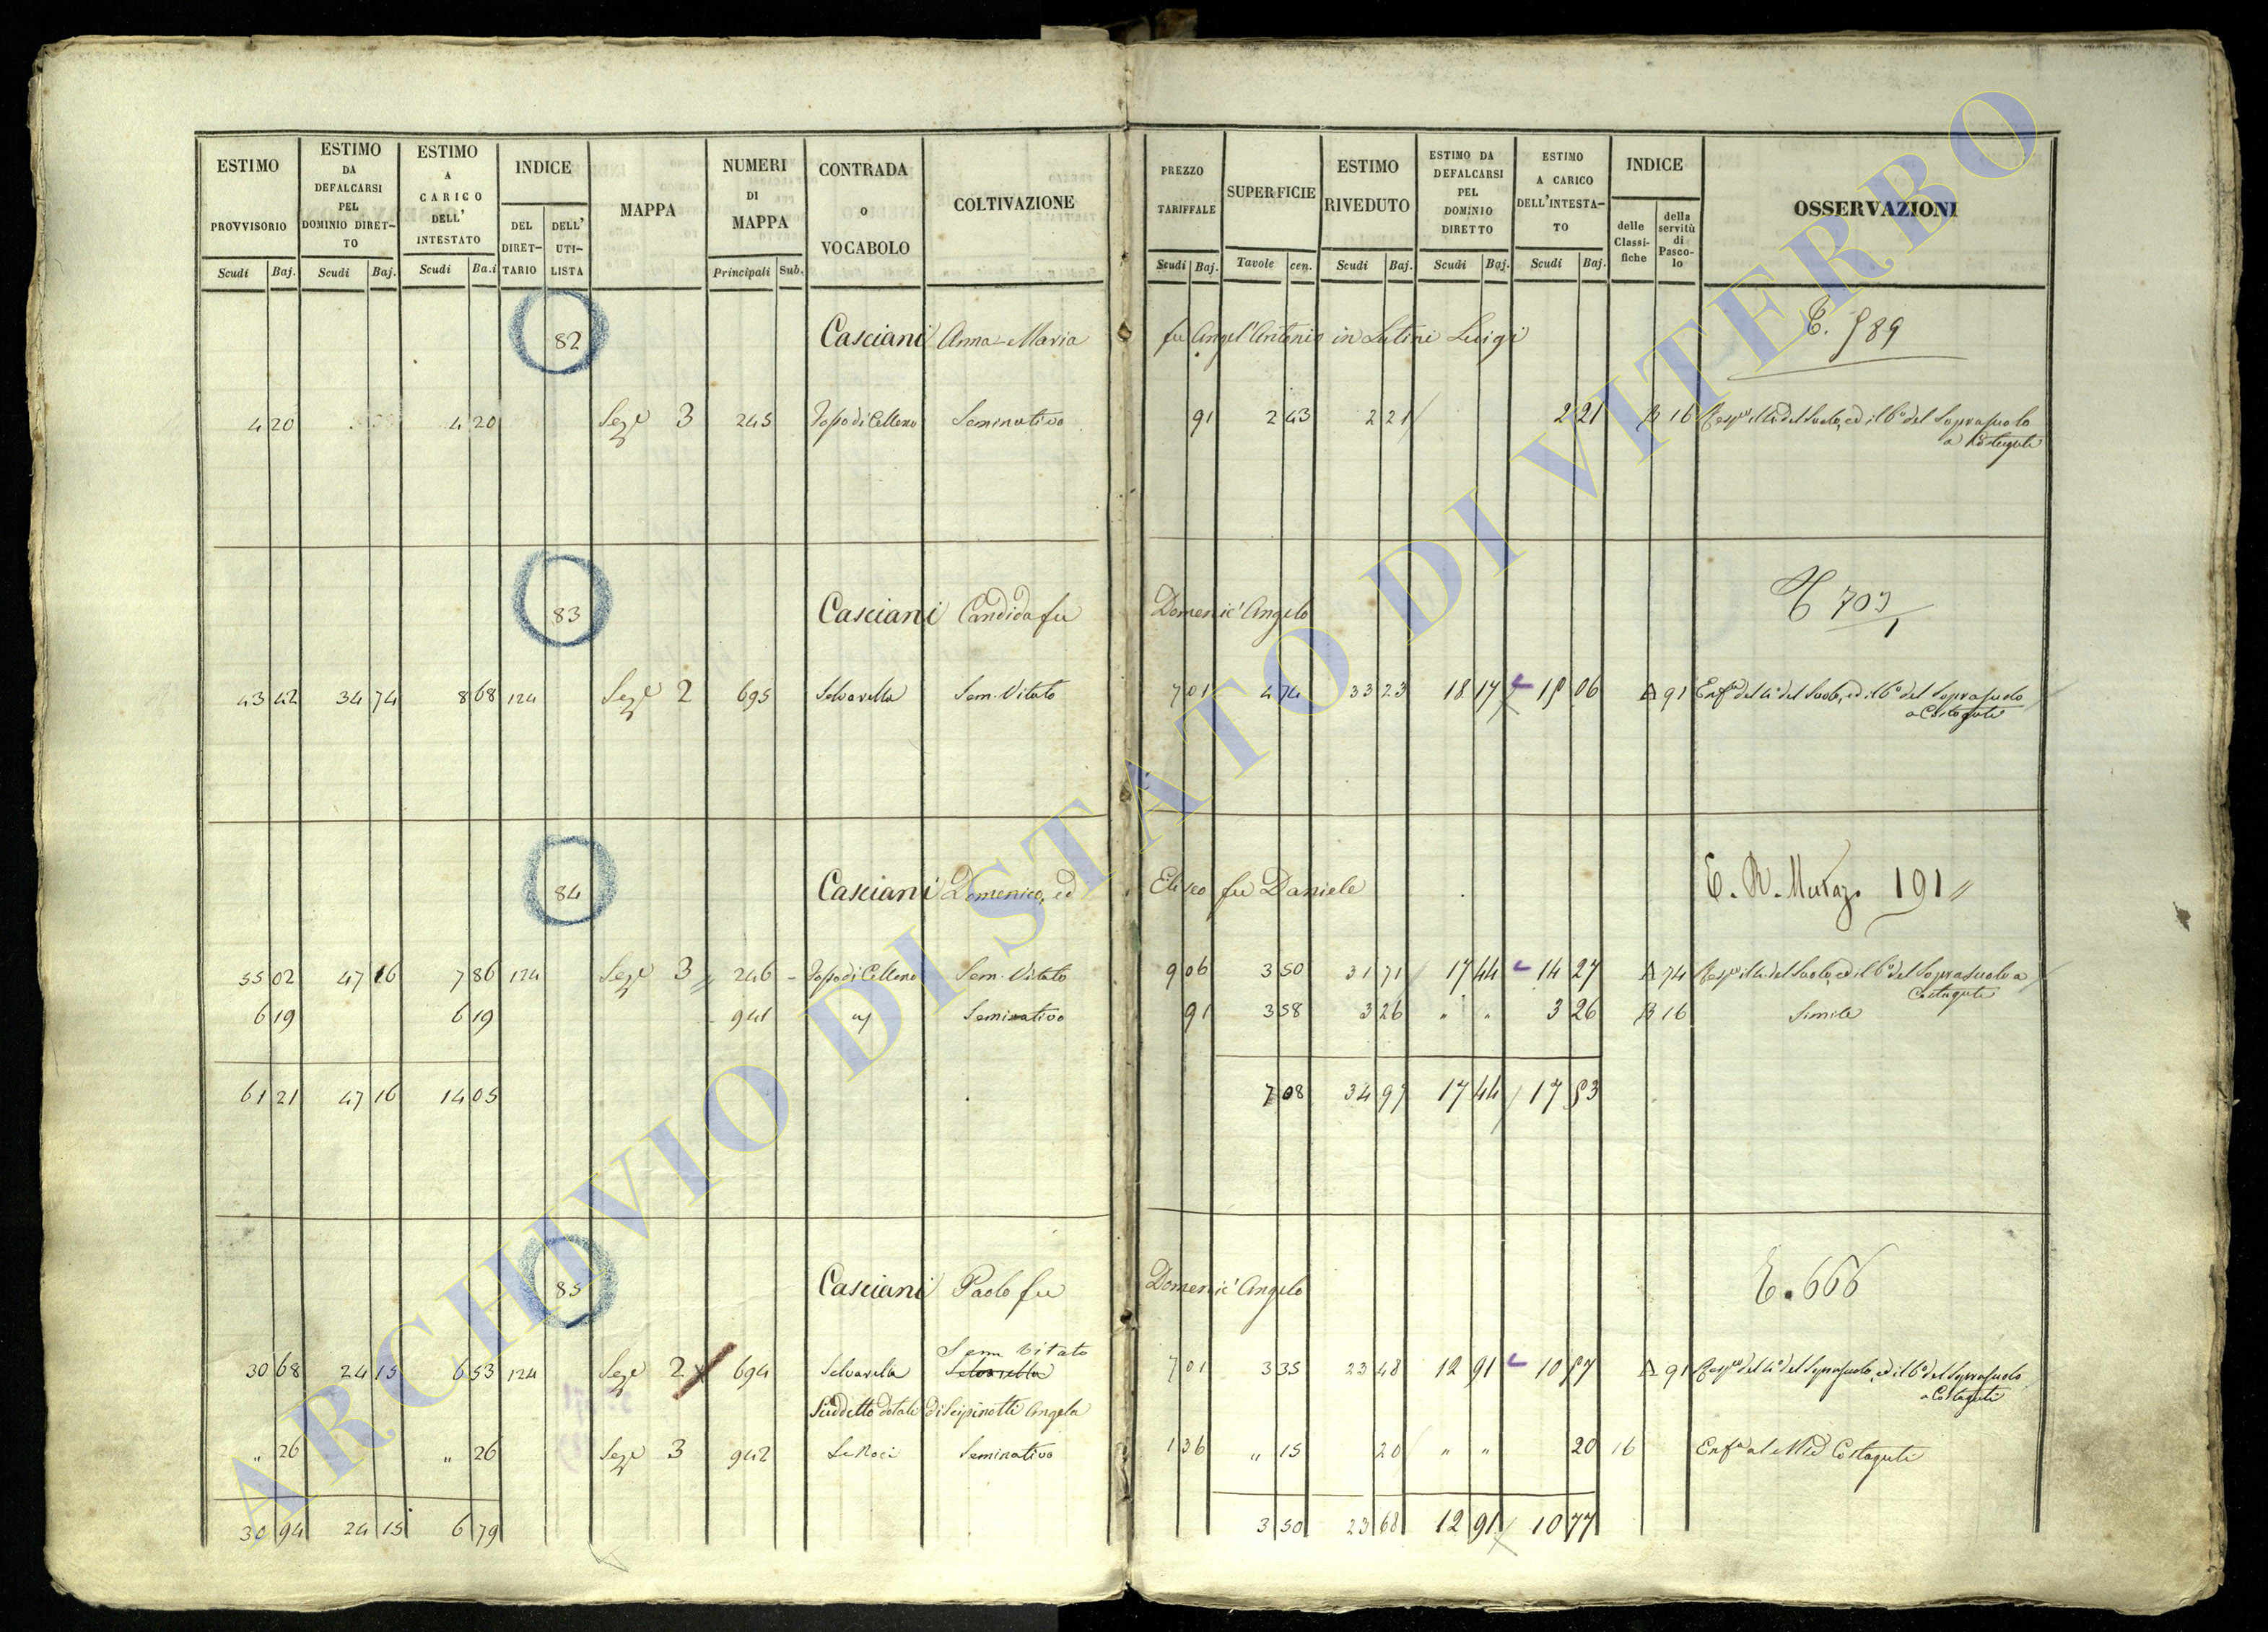 ESTIMO PROVVISORIO Scudi Baj.
ESTIMO DA DEFALCARSI PEL DOMINIO DIRET-TO Scudi Baj.
ESTIMO A CARICO DELL' INTESTATO Scudi Ba.i
INDICE DEL DIRET-TARIO DELL' UTI-LISTA
MAPPA
NUMERI DI MAPPA Principali Sub.
CONTRADA o VOCABOLO
COLTIVAZIONE
PREZZO TARIFFALE Scudi Baj.
SUPERFICIE Tavole cen.
ESTIMO RIVEDUTO Scudi Baj.
ESTIMO DA DEFALCARSI PEL DOMINIO DIRETTO Scudi Baj.
ESTIMO A CARICO DELL'INTESTA-TO Scudi Baj.
INDICE delle Classi-fiche della servitù di Pasco-lo
OSSERVAZIONI
82 Casciani Anna Maria fu Angel'Antonio in Luigi
4 20 4 20 Sez.e 3 245 di Celleno Seminativo 91 2 43 2 21 2 21 B 16 del Suolo, ed il 6° del Soprasuolo
a Costaguti
83 Casciani Candida fu Domenic'Angelo
43 42 34 74 8 68 124 Sez.e 2 695 Selvarella Sem. Vitato 7 01 4 74 33 23 18 17 15 06 A 91 del 4° del Suolo, ed il 6° del Soprasuolo
a Costaguti
84 Casciani Domenico, ed Eliseo fu Daniele E. R. 191
55 02 47 16 7 86 124 Sez.e 3 246 di Celleno Sem. Vitato 9 06 3 50 31 71 17 44 14 27 A 74 del Suolo, ed il 6° del Soprasuolo a
Costaguti
6 19 6 19 941 Seminativo 91 3 58 3 26 " " 3 26 B 16 Simile
61 21 47 16 14 05 7 08 34 97 17 44 17 53
85 Casciani Paolo fu Domenic'Angelo E. 666
Sem Vitato
30 68 24 15 6 53 124 Sez.e 2 694 Selvarella Selvarella 7 01 3 35 23 48 12 91 10 57 A 91 del 4° del Soprasuolo, ed il 6° del Soprasuolo
a Costaguti
Suddetto dotale di Scipinotti Angela
" 26 " 26 Sez.e 3 942 Le Noci Seminativo 1 36 " 15 20 " " 20 16 al Costaguti
30 94 24 15 6 79 3 50 23 68 12 91 10 77
ARCHIVIO DI STATO DI VITERBO